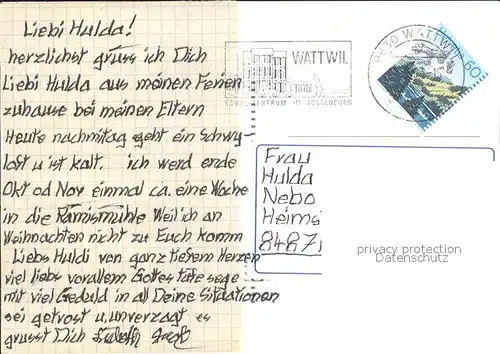 Liebi Hulda!
herzlichst grüss ich Dich
Liebi Hulda aus meinen Ferien
zuhause bei meinen Eltern
Heute nachmitag geht ein Schwy-
lost u ist kalt. ich werd ende
Okt od Nov einmal ca. eine Woche
in die Ramismühle Weil ich an
Weihnachten nicht zu Euch komm
Liebs Huldi von ganz tiefem Herzen
viel liebs vorallem Gottes
mit viel Geduld in all Deine Situationen
sei getrost u. unverzagt es
grüsst Dich
WATTWIL
SCHULZENTRUM IM TOGGENBURG
9630 WATTWIL
60
Frau
Hulda
Nebo
Heims
8487
privacy protection
Datenschutz